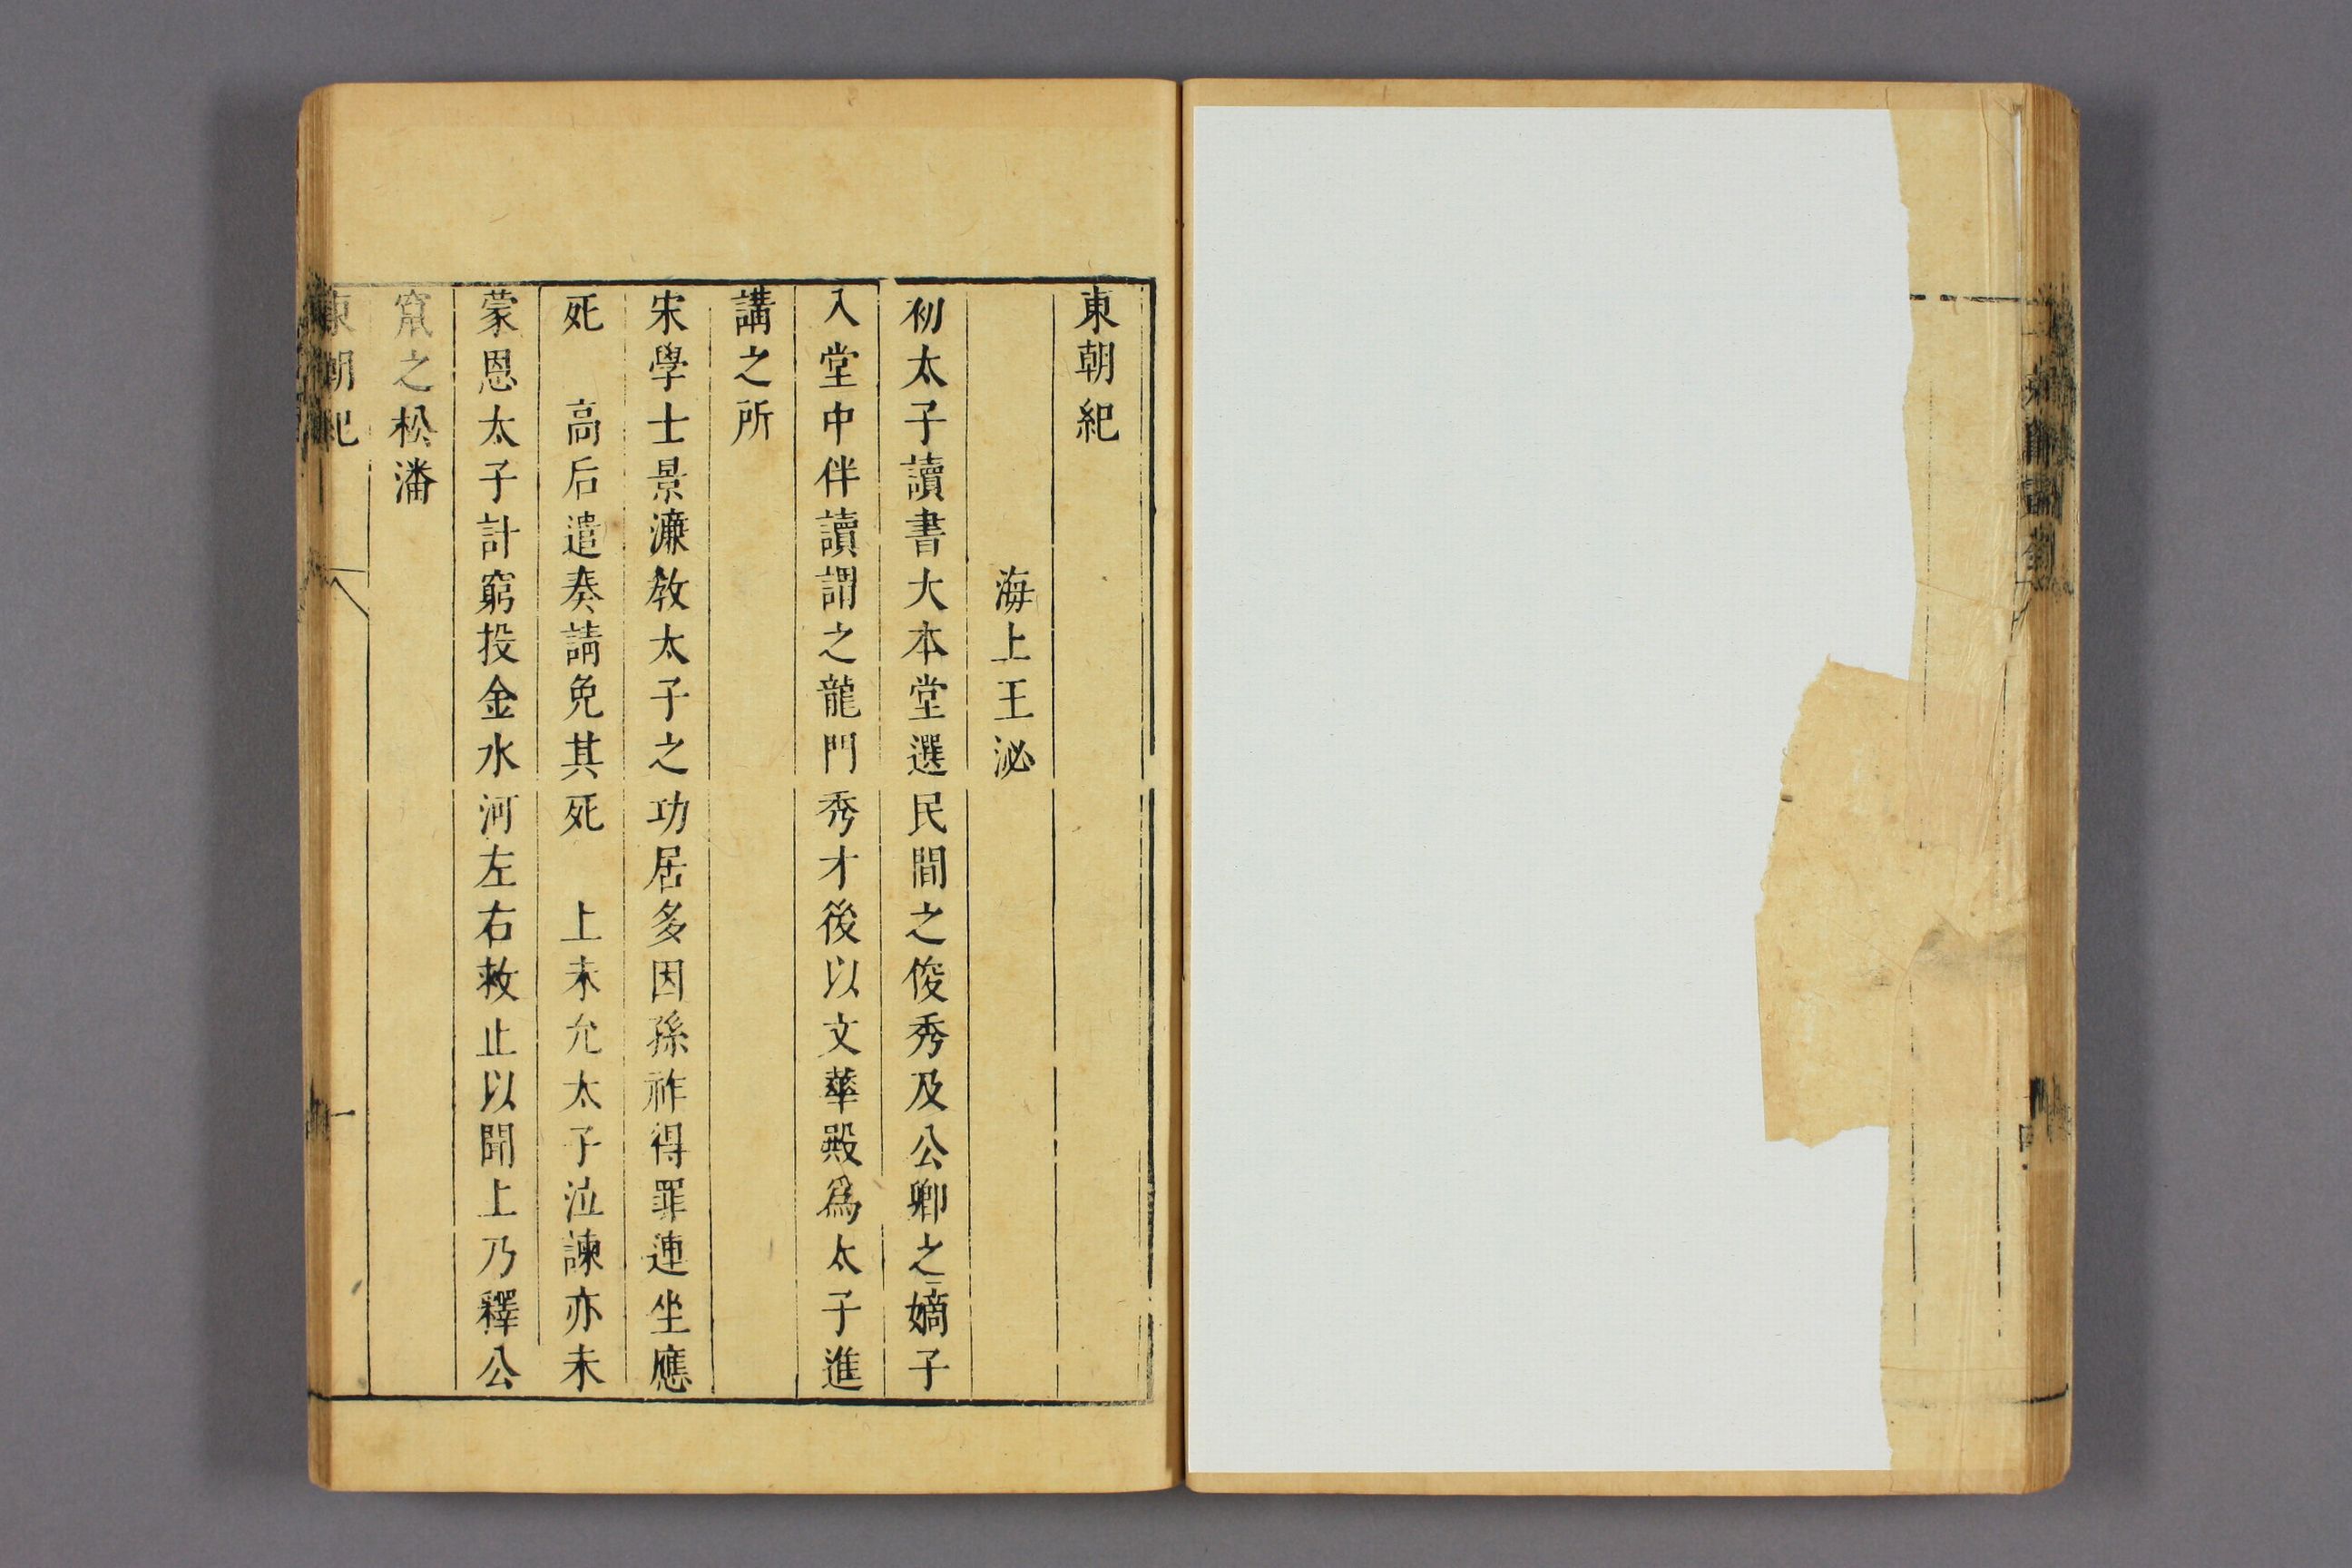 東朝紀
海上王泌
初太子讀書大本堂選民間之俊秀及公卿之嫡子
入堂中伴讀謂之龍門秀才後以文華殿爲太子進
講之所
宋學士景濂教太子之功居多因孫祚得罪連坐應
死　高后遣奏請免其死　上未允太子泣諫亦未
蒙恩太子計窮投金水河左右救止以聞上乃釋公
竄之松潘
東朝紀
一